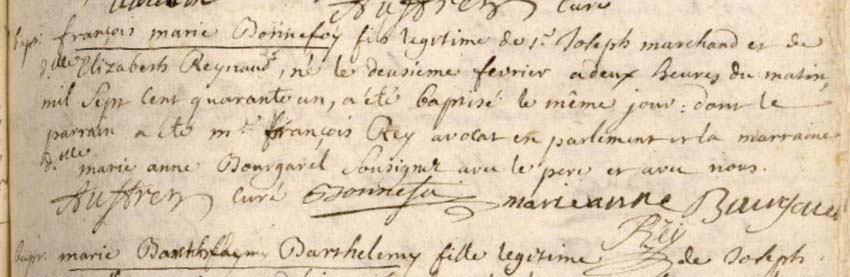 Auffren Curé
Bapt. françois marie Bonnefoy fils legitime de Sr. Joseph marchand et de
d.lle Elizabeth Reynaud, né le deusieme fevrier a deux heures du matin,
mil Sept Cent quarante un, a été baptisé le même jour: dont le
parrain a été mr. françois Rey avocat en parlement et la marraine
d.lle marie anne Bourgarel Sousignez avec le pere et avec nous.
Auffren Curé Bonnefoi marie anne Bourgarel
Rëy
bapt. marie Barthelemy fille legitime de Joseph